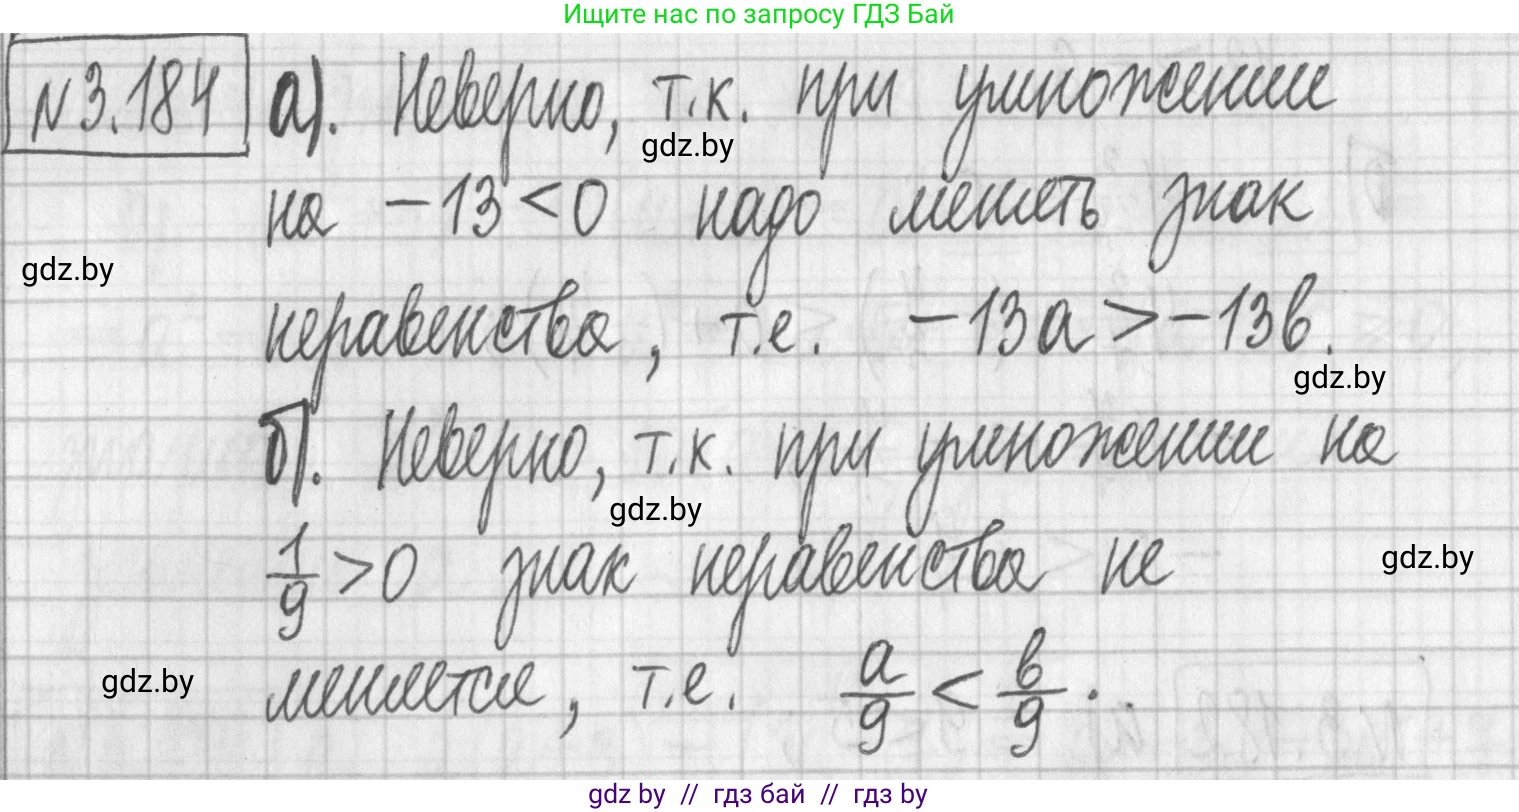 Ищите нас по запросу ГДЗ Бай
№3.184 а). Неверно, т.к. при умножении
gdz.by
на -13<0 надо менять знак
gdz.by
неравенства, т.е. -13a>-13b.
gdz.by
б). Неверно, т.к. при умножении на
gdz.by
1/9>0 знак неравенства не
gdz.by
меняется, т.е. a/9<b/9.
gdz.by
gdz by // гдз бай // гдз by